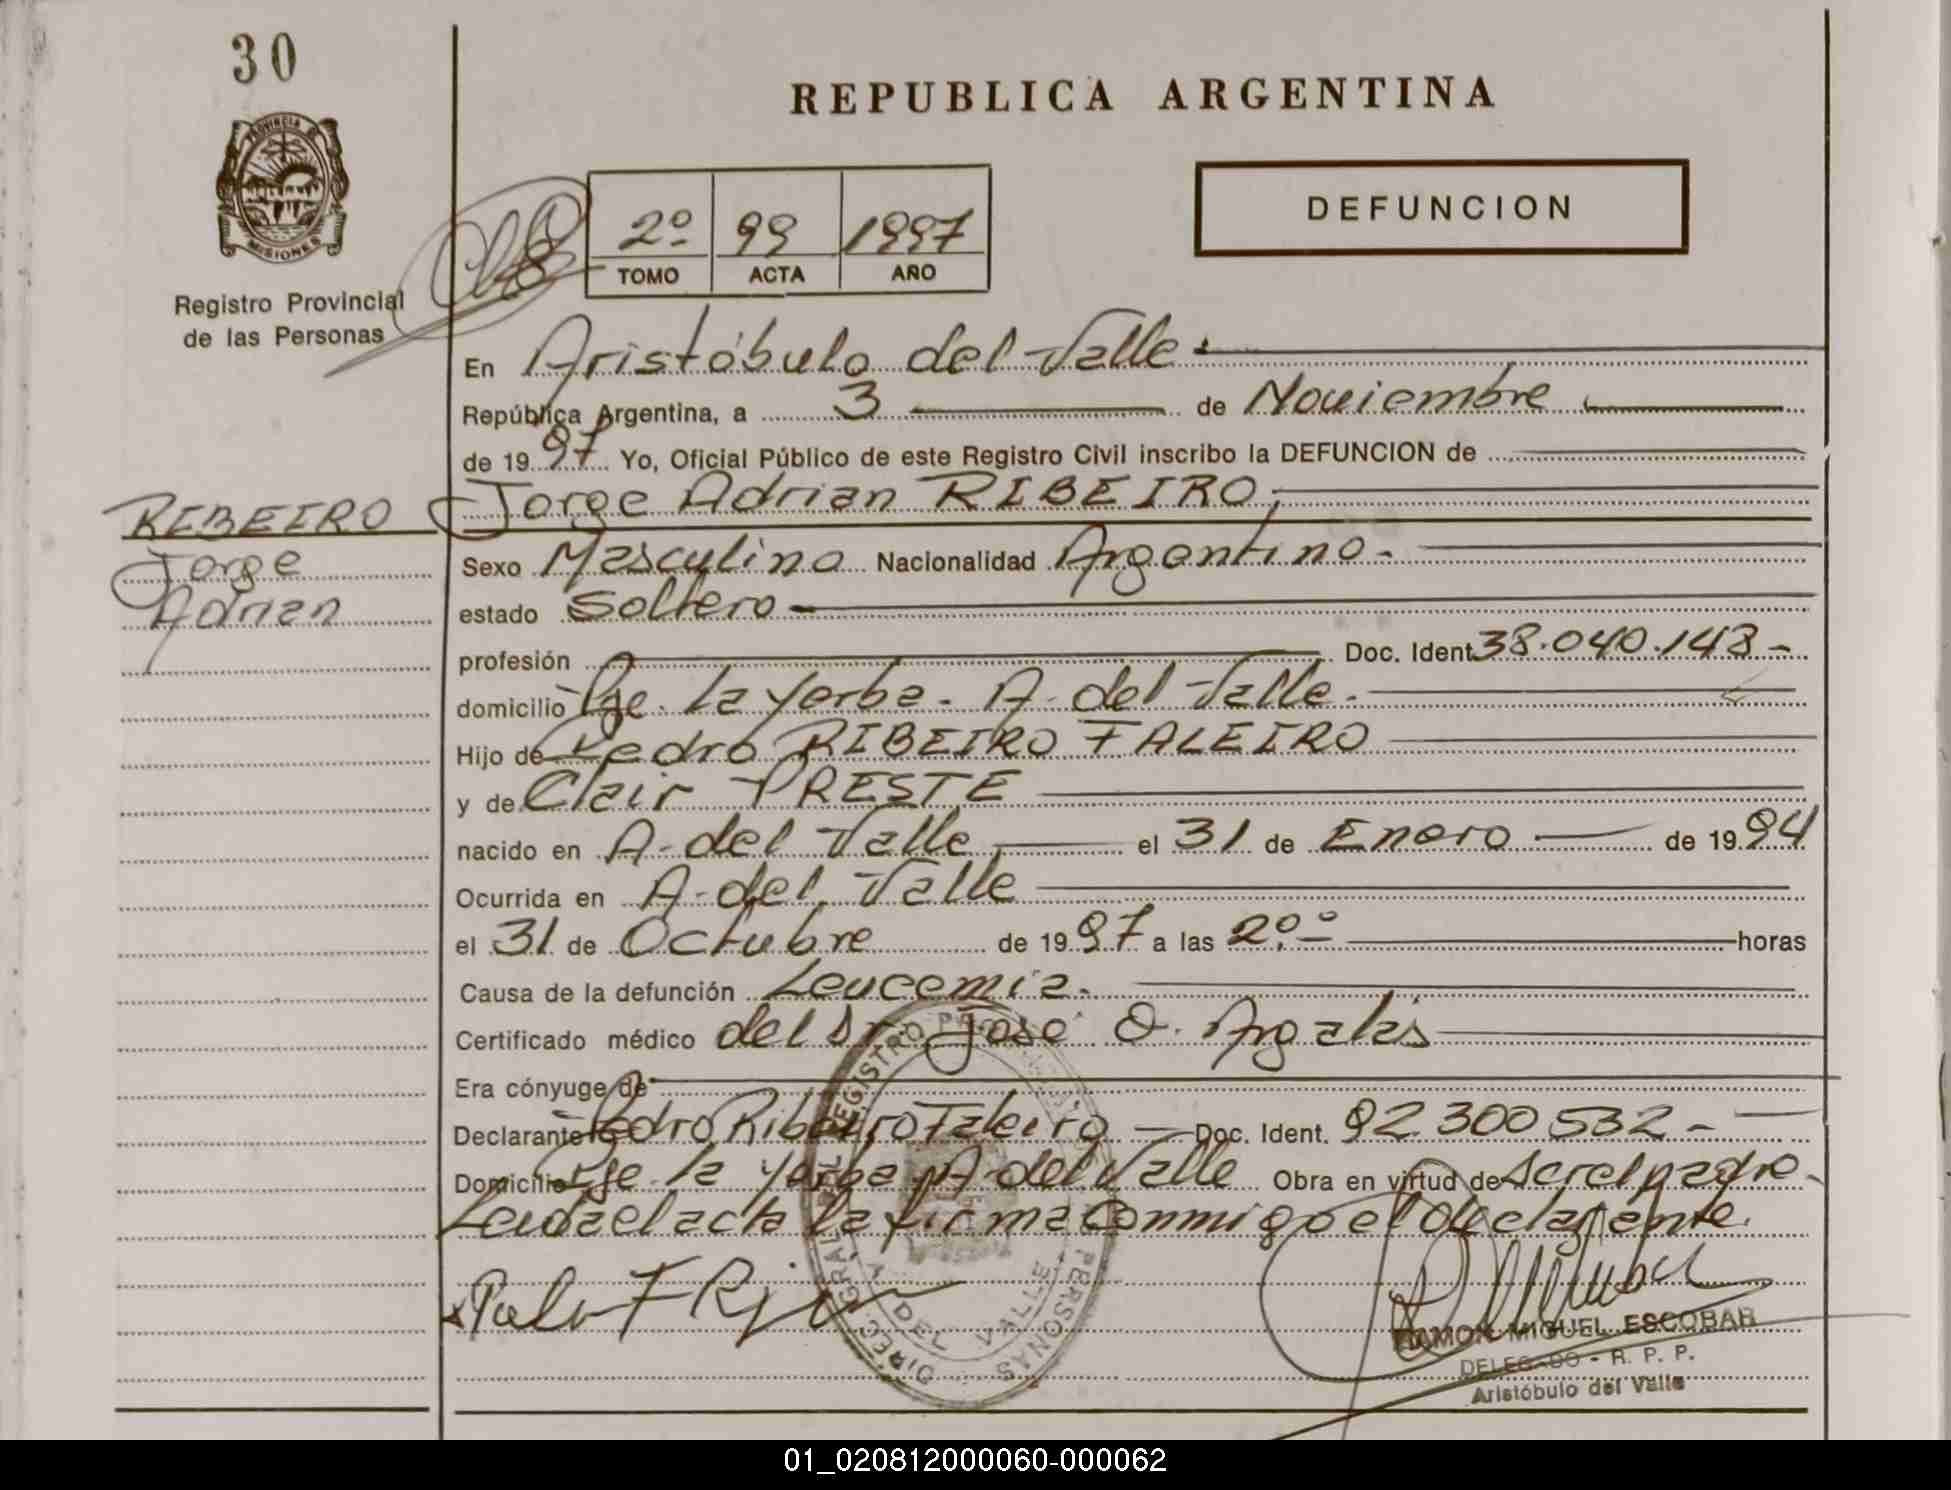 30
REPUBLICA ARGENTINA
PROVINCIA DE
MISIONES
Registro Provincial
de las Personas
2º 99 1997
TOMO ACTA AÑO
DEFUNCION
En Aristóbulo del Valle.
República Argentina, a 3 de Noviembre
de 1997 Yo, Oficial Público de este Registro Civil inscribo la DEFUNCION de
Jorge Adrian RIBEIRO.
RIBEIRO
Jorge
Adrian
Sexo Masculino Nacionalidad Argentino.-
estado Soltero
profesión Doc. Ident. 38.040.148-
domicilio Pje. La Yerba - A. del Valle.
Hijo de Pedro RIBEIRO FALEIRO
y de Clair PRESTE
nacido en A. del Valle el 31 de Enero de 1994
Ocurrida en A. del Valle
el 31 de Octubre de 1997 a las horas
Causa de la defunción Leucemia.
Certificado médico del Dr. José O.
Era cónyuge de
Declarante Pedro Ribeiro Faleiro Doc. Ident. 92 300 532-
Domicilio Pje. la Yerba A. del Valle Obra en virtud de ser el padre.
Leida el acta la firma conmigo el declarante.
DIREC. GRAL. DEL REGISTRO PERSONAS
A. DEL VALLE
RAMON MIGUEL ESCOBAR
DELEGADO - R. P. P.
Aristóbulo del Valle
01_020812000060-000062